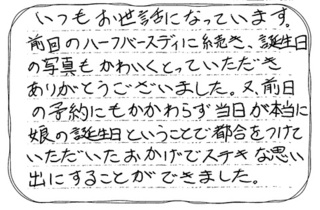 いつもお世話になっています。
前回のハーフバースディに続き、誕生日
の写真もかわいくとっていただき
ありがとうございました。又、前日
の予約にもかかわらず当日が本当に
娘の誕生日ということで都合をつけて
いただいたおかげでステキな思い
出にすることができました。